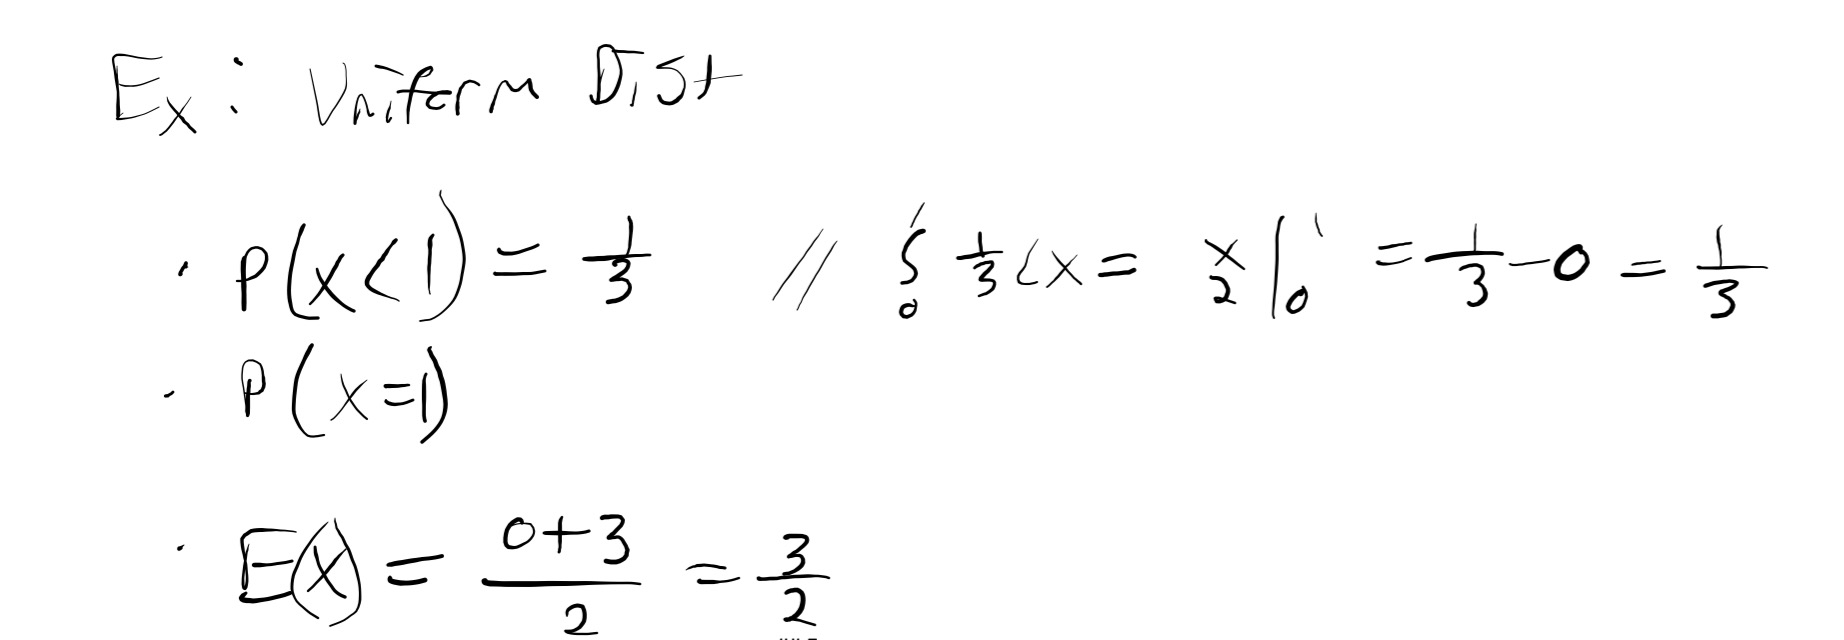 Ex: Uniform Dist
· P(x<1) = 1/3 // ∫₀¹ 1/3 dx = x/2 |₀¹ = 1/3 - 0 = 1/3
· P(x=1)
· E(x) = (0+3)/2 = 3/2